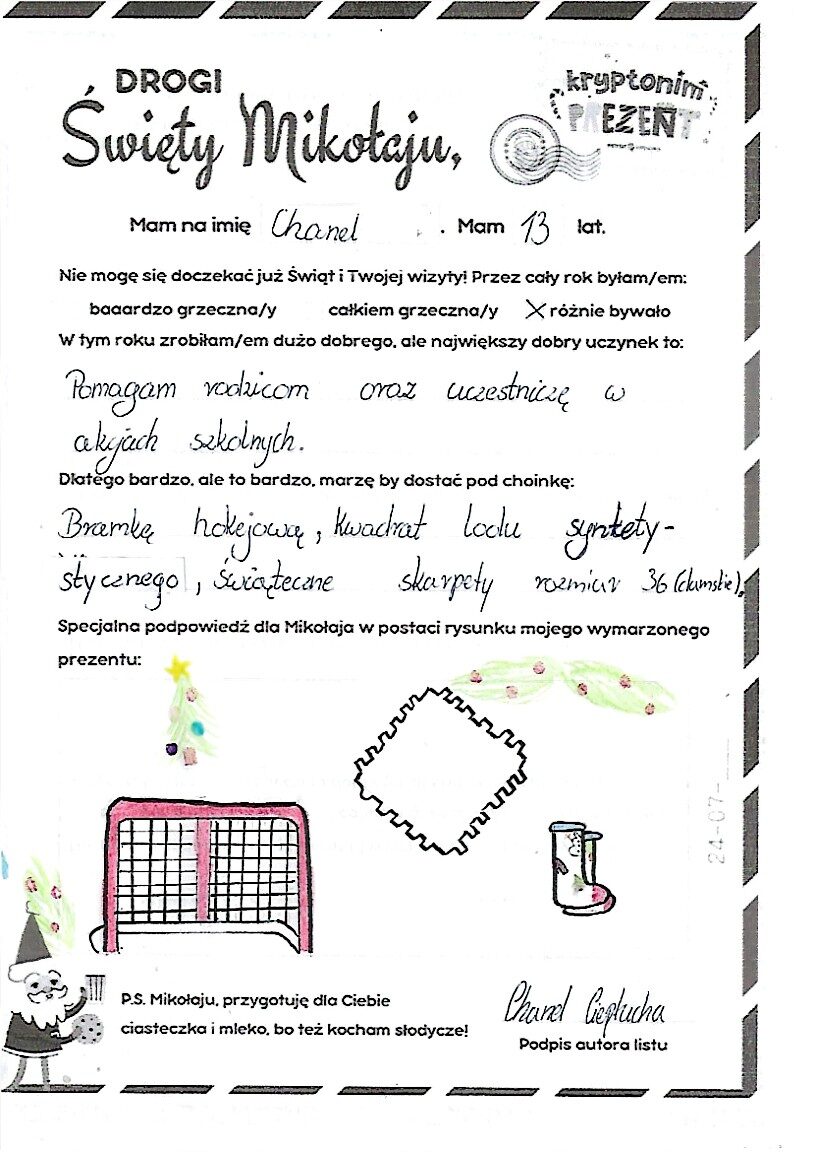 DROGI
Święty Mikołaju,
kryptonim
PREZENT
Mam na imię Chanel . Mam 13 lat.
Nie mogę się doczekać już Świąt i Twojej wizyty! Przez cały rok byłam/em:
baaardzo grzeczna/y całkiem grzeczna/y X różnie bywało
W tym roku zrobiłam/em dużo dobrego, ale największy dobry uczynek to:
Pomagam rodzicom oraz uczestniczę w
akcjach szkolnych.
Dlatego bardzo, ale to bardzo, marzę by dostać pod choinkę:
Bramkę hokejową, kwadrat lodu syntety-
stycznego, świąteczne skarpety rozmiar 36 (damskie).
Specjalna podpowiedź dla Mikołaja w postaci rysunku mojego wymarzonego
prezentu:
24-07-
P.S. Mikołaju, przygotuję dla Ciebie
ciasteczka i mleko, bo też kocham słodycze!
Chanel Cieplucha
Podpis autora listu